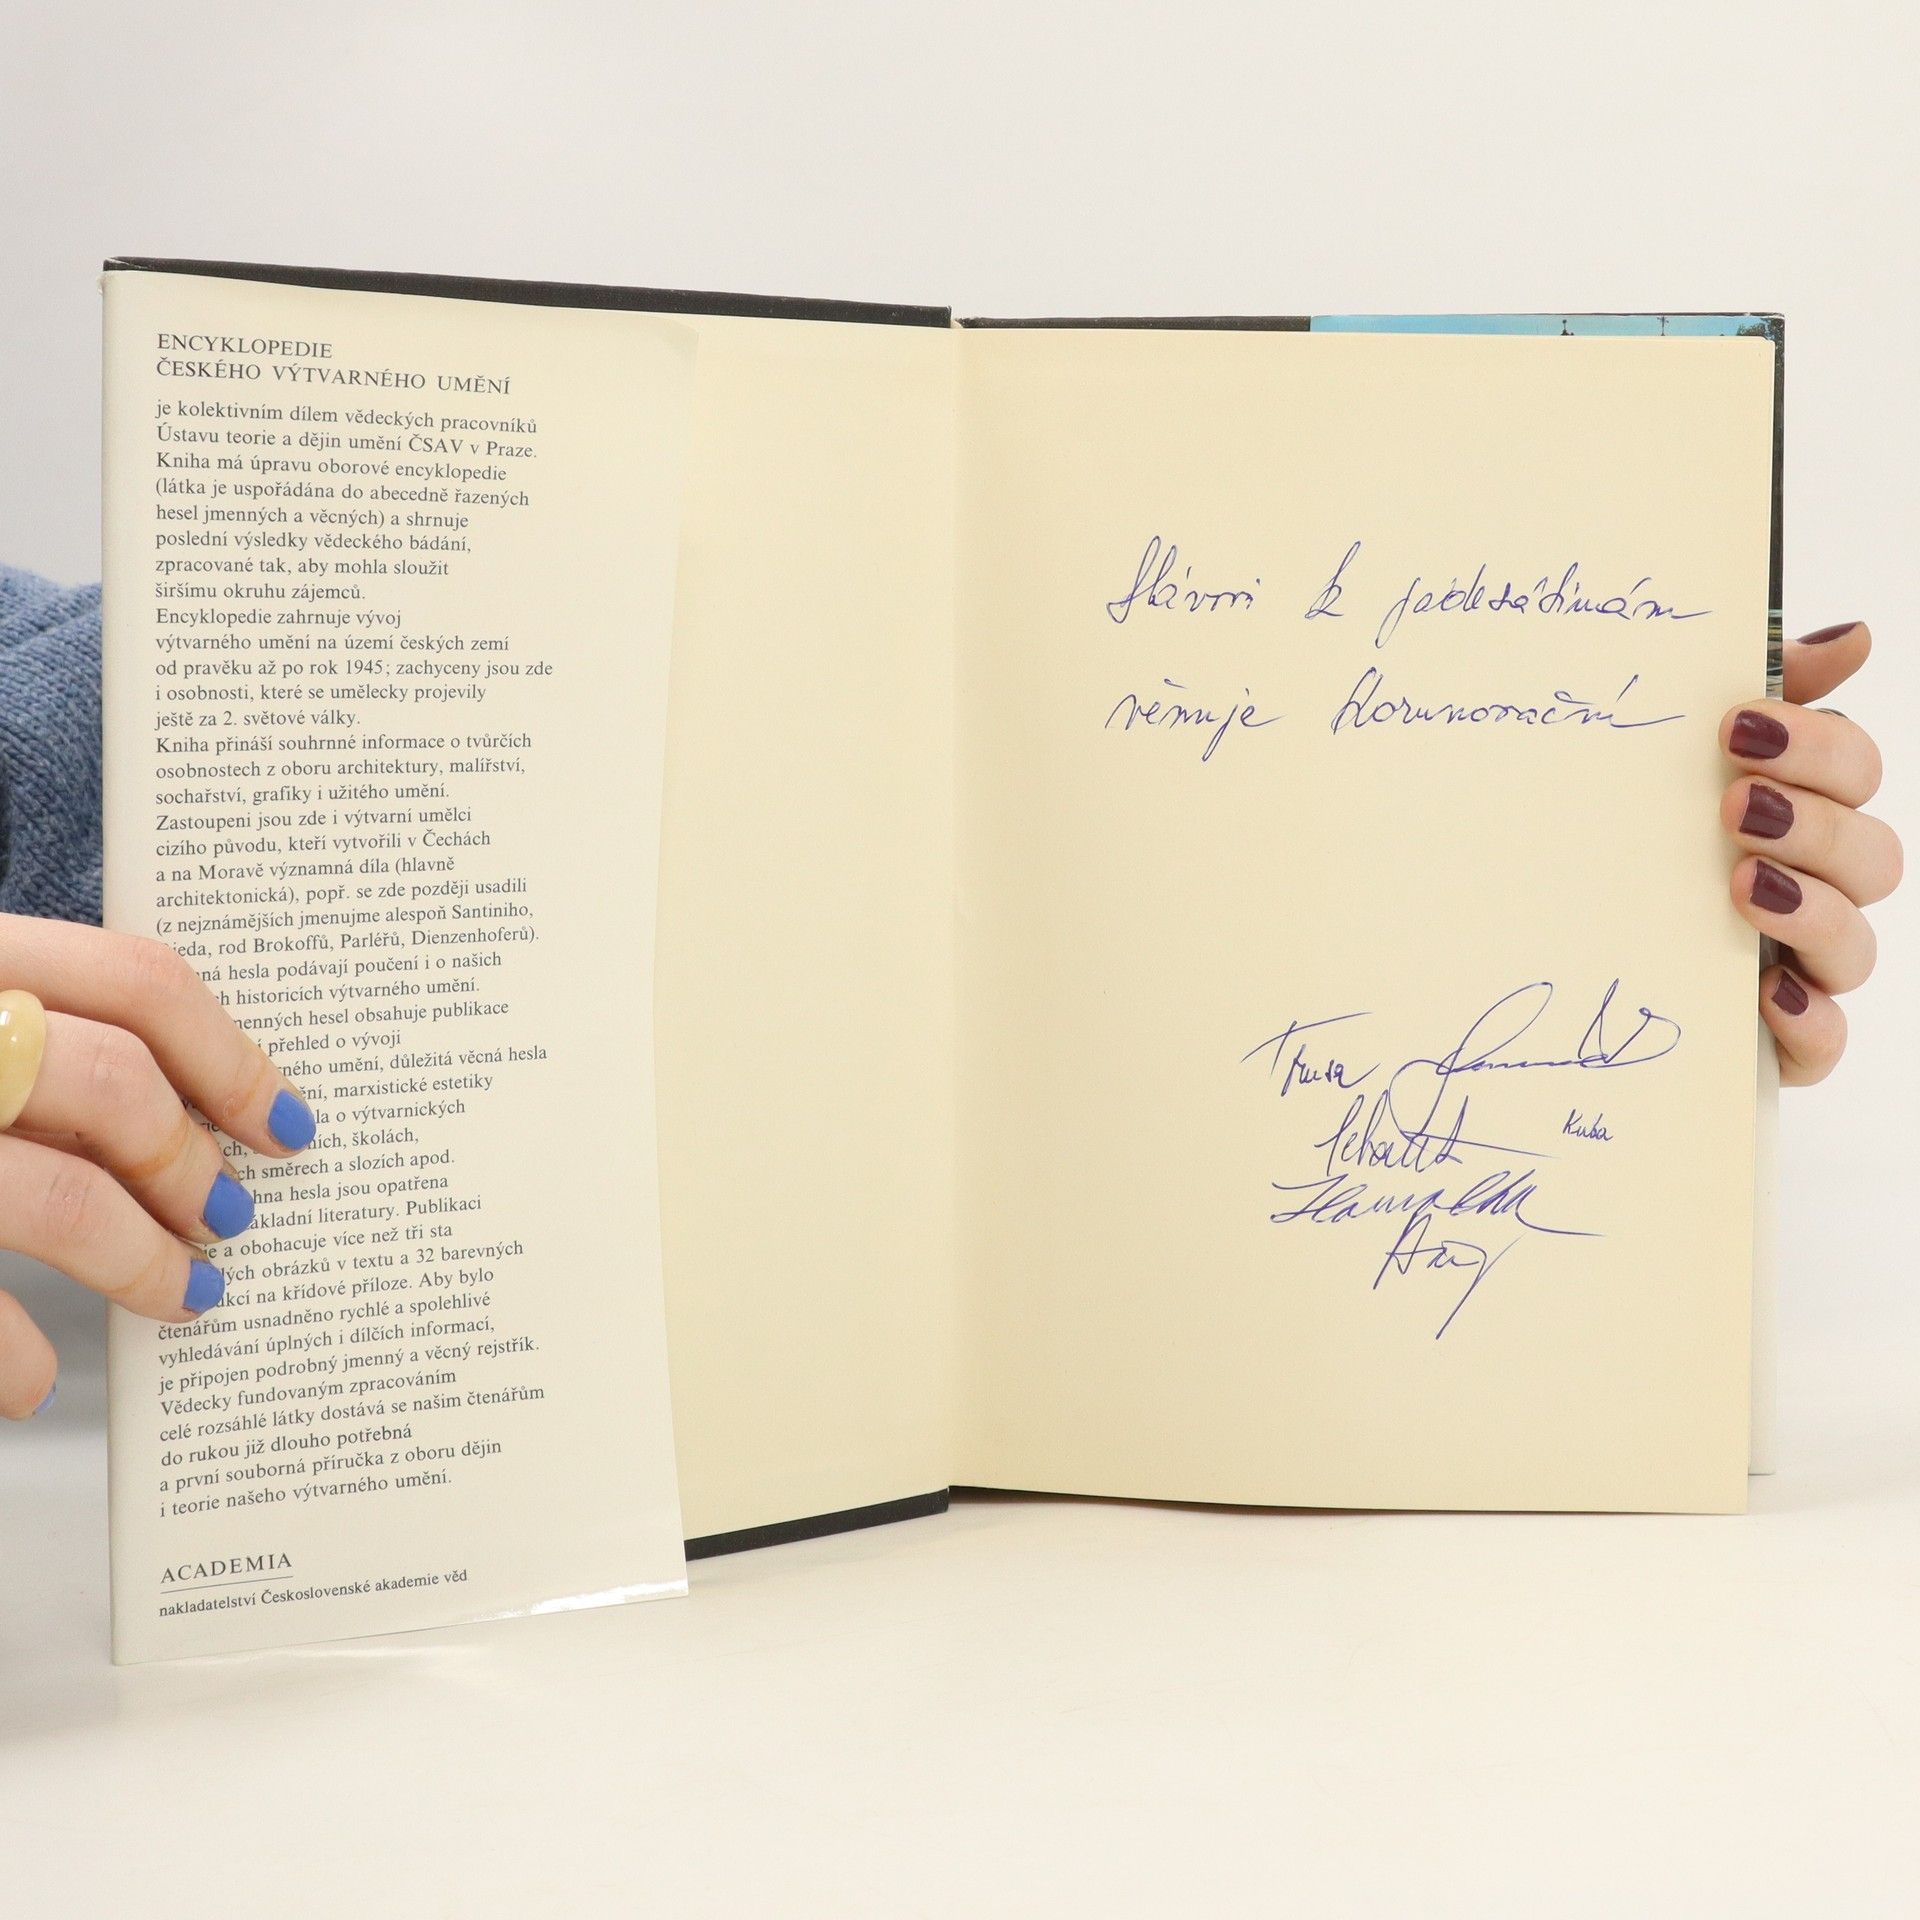 ENCYKLOPEDIE
ČESKÉHO VÝTVARNÉHO UMĚNÍ
je kolektivním dílem vědeckých pracovníků
Ústavu teorie a dějin umění ČSAV v Praze.
Kniha má úpravu oborové encyklopedie
(látka je uspořádána do abecedně řazených
hesel jmenných a věcných) a shrnuje
poslední výsledky vědeckého bádání,
zpracované tak, aby mohla sloužit
širšímu okruhu zájemců.
Encyklopedie zahrnuje vývoj
výtvarného umění na území českých zemí
od pravěku až po rok 1945; zachyceny jsou zde
i osobnosti, které se umělecky projevily
ještě za 2. světové války.
Kniha přináší souhrnné informace o tvůrčích
osobnostech z oboru architektury, malířství,
sochařství, grafiky i užitého umění.
Zastoupeni jsou zde i výtvarní umělci
cizího původu, kteří vytvořili v Čechách
a na Moravě významná díla (hlavně
architektonická), popř. se zde později usadili
(z nejznámějších jmenujme alespoň Santiniho,
rod Brokoffů, Parléřů, Dienzenhoferů).
hesla podávají poučení i o našich
historicích výtvarného umění.
hesel obsahuje publikace
přehled o vývoji
umění, důležitá věcná hesla
marxistické estetiky
o výtvarnických
školách,
směrech a slozích apod.
hesla jsou opatřena
literatury. Publikaci
a obohacuje více než tři sta
obrázků v textu a 32 barevných
na křídové příloze. Aby bylo
čtenářům usnadněno rychlé a spolehlivé
vyhledávání úplných i dílčích informací,
je připojen podrobný jmenný a věcný rejstřík.
Vědecky fundovaným zpracováním
celé rozsáhlé látky dostává se našim čtenářům
do rukou již dlouho potřebná
a první souborná příručka z oboru dějin
i teorie našeho výtvarného umění.
ACADEMIA
nakladatelství Československé akademie věd
Slávovi k padesátinám
věnuje Korunovační
Kuba